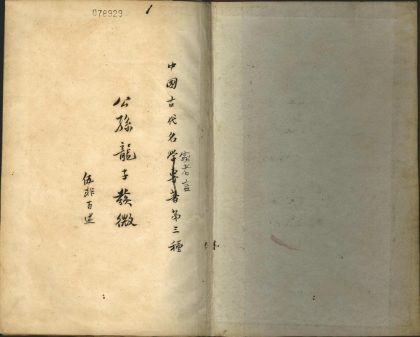 078923
中國古代名學叢著第三種
公孫龍子發微
伍非百述